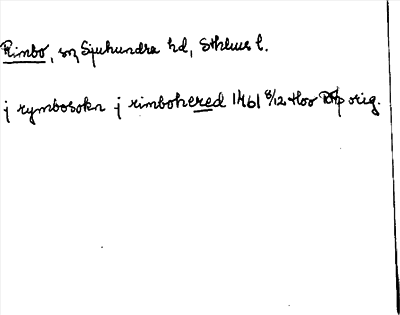 Rimbo, sn Sjuhundra hd, Sthlms l.
j rymbosokn j rimbohered 1461 8/12 Hoor orig.